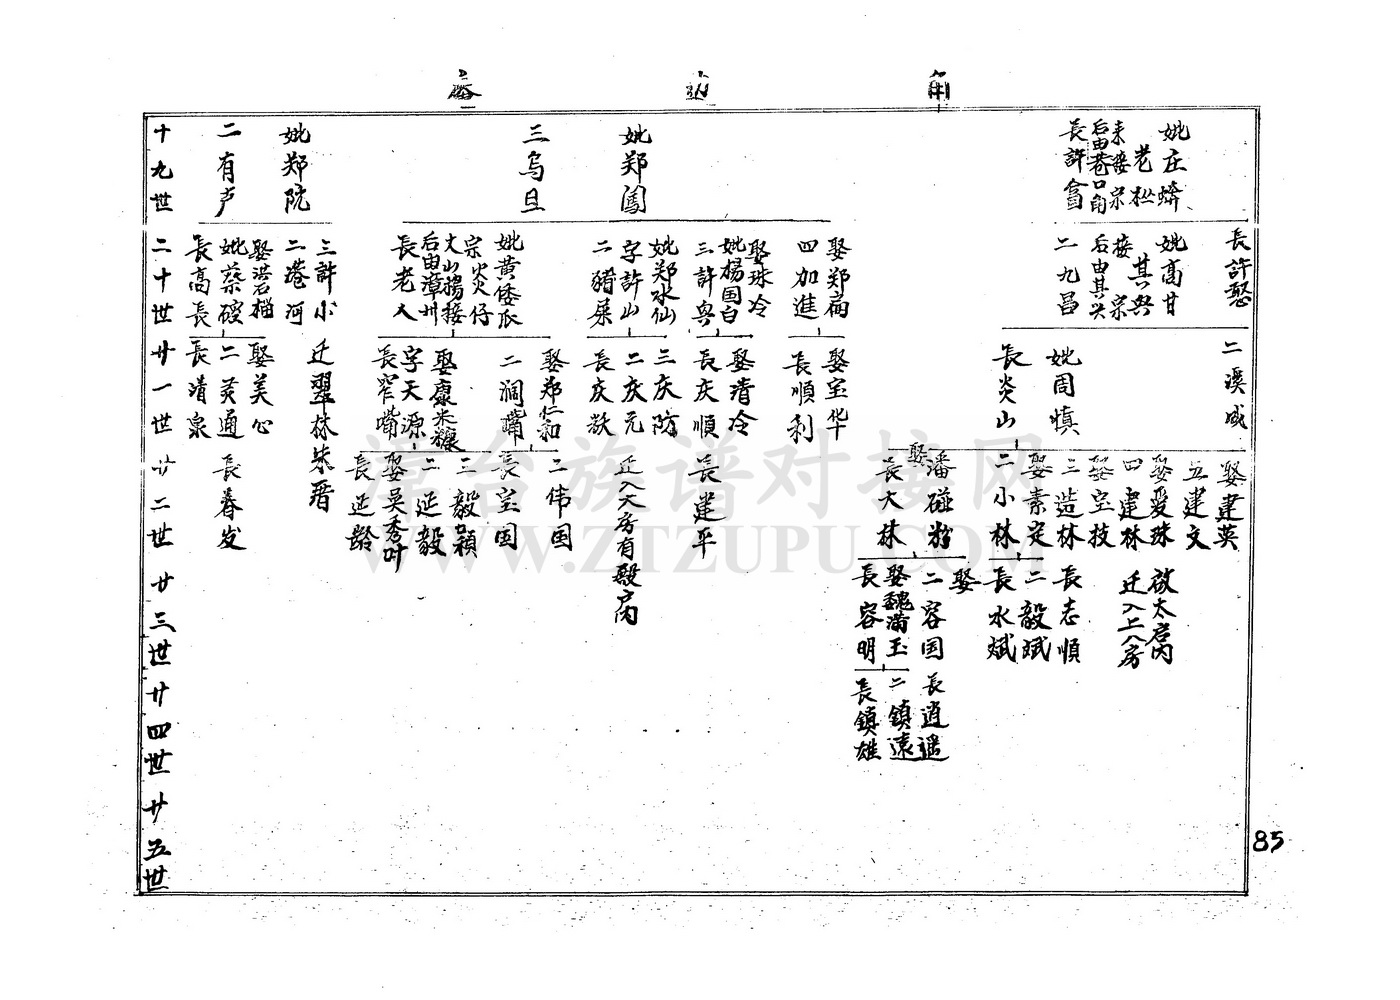 角 边
妣庄蜯
老
来接宗
后由巷口角
長許畲
妣郑閩
三烏旦
妣郑阮
二有卢
十九世
長許憨
妣高甘
其兴
接宗
后由其兴
二九昌
娶郑扁
四加進
娶珠冷
妣楊国白
三許兴
妣郑水仙
字許山
二豬屎
妣黄倭瓜
宗炎炎仔
大山揚接
后由漳州
長老人
三許小
二港河
娶洪若楣
妣蔡碳
長高長
二十世
二溪咸
妣周慎
長炎山
娶宝华
長順利
娶清冷
長庆順
三庆防
二庆元
長庆
娶郑仁和
二润嘴
娶康米糠
字天源
長窄嘴
迁翠林朱厝
娶美心
二芙通
長清泉
廿一世
娶建英
五建文
娶爱珠
四建林
娶宝技
三造林
娶素定
二小林
娶潘碰粉
長大林
長建平
迁入大房有殿房内
二伟国
長宝国
三毅颖
二延毅
娶吴秀叶
長延龄
長春发
廿二世
啟太房内
迁入上八房
長志順
二毅斌
長水斌
娶
二容国
娶魏满玉
長容明
廿三世
長逍遥
二鎮遠
長鎮雄
廿四世
廿五世
85
漳台族谱对接网
WWW.ZTZUPU.COM